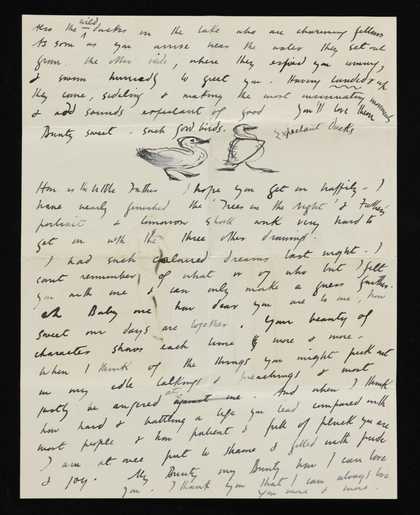 Also the wild ducks on the lake who are charming fellows
As soon as you arrive near the water they get out
from the other side, where they expect you coming,
& swim hurriedly to greet you. Having landed up
they come, sideling & making the most insinuating movements
& odd sounds expectant of good You'll love them
Bunty sweet. Such good birds.
Expectant Ducks
How is the little Father I hope you get on happily - I
have nearly finished the 'Trees in the night' & Father's
portrait & tomorrow shall work very hard to
get on with the three other drawings.
I had such coloured dreams last night. I
cant remember of what or of who but I felt
you with me & can only make a guess further.
Oh Baby one how dear you are to me, how
sweet our days are together. Your beauty of
character shows each time & more & more.
When I think of the things you might pick out
in my idle talkings & preachings & most
justly be angered at against me. And when I think
how hard & battling a life you lead compared with
most people & how patient & full of pluck you are
I am at once put to shame & filled with pride
& joy. My Bunty my Bunty how I can love
you. I thank you that I can always love
you more & more.